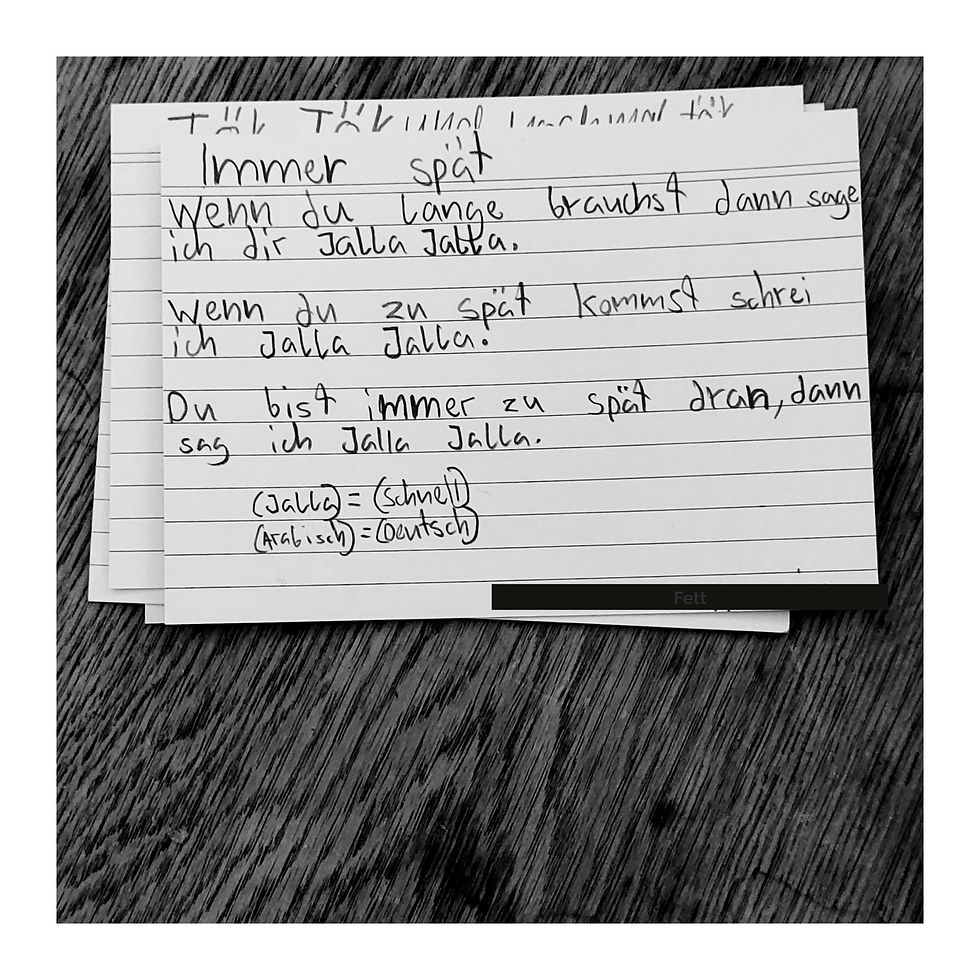 Immer spät
Wenn du lange brauchst dann sage
ich dir Jalla Jalla.
Wenn du zu spät kommst schrei
ich Jalla Jalla.
Du bist immer zu spät dran, dann
sag ich Jalla Jalla.
(Jalla) = (Schnell)
(Arabisch) = (Deutsch)
Fett